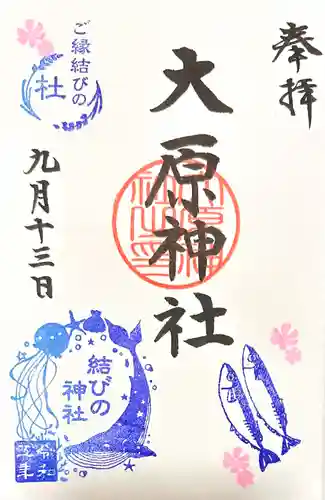 奉拝
大原神社
ご縁結びの
社
九月十三日
結びの
神社
令和